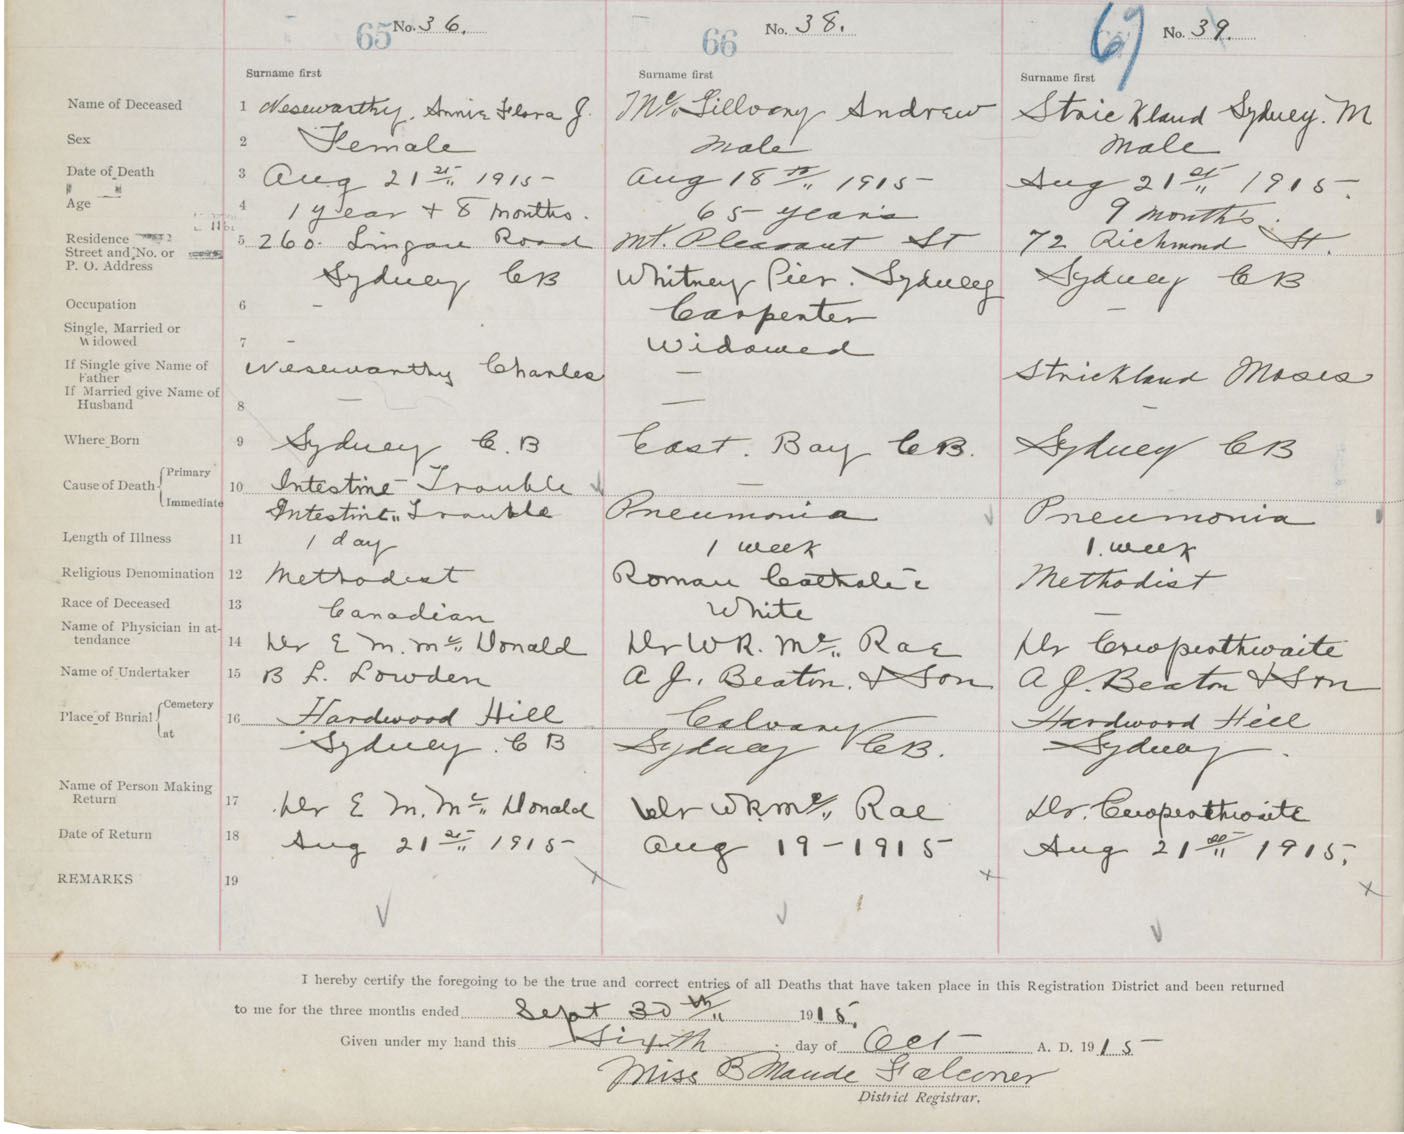 65 No. 36. 66 No. 38. 67 No. 39.
Surname first Surname first Surname first
Name of Deceased 1 Nesewarthy, Annie Flora J. Mc Gillvary Andrew Strickland Sydney. M
Sex 2 Female male male
Date of Death 3 Aug 21st 1915 Aug 18th 1915 Aug 21st 1915.
Age 4 1 year + 8 months. 65 years 9 months.
Residence 5 260. Lingan Road Mt. Pleasant St 72 Richmond St.
Street and No. or
P. O. Address Sydney CB Whitney Pier. Sydney Sydney CB
Occupation 6 – Carpenter –
Single, Married or
Widowed 7 – Widowed
If Single give Name of
Father Nesewarthy Charles — Strickland Moses
If Married give Name of
Husband 8 — — –
Where Born 9 Sydney C.B East. Bay CB. Sydney CB
Cause of Death Primary 10 Intestine Trouble —
Immediate Intestine Trouble Pneumonia Pneumonia
Length of Illness 11 1 day 1 week 1. week
Religious Denomination 12 Methodist Roman Catholic Methodist
Race of Deceased 13 Canadian White —
Name of Physician in at-
tendance 14 Dr E M. Mc Donald Dr W R. Mc Rae Dr Cowperthwaite
Name of Undertaker 15 B L. Lowden A J. Beaton. & Son A J. Beaton & Son
Place of Burial Cemetery 16 Hardwood Hill Calvary Hardwood Hill
at Sydney. CB Sydney CB. Sydney.
Name of Person Making
Return 17 Dr E M. Mc Donald Dr W R. Mc Rae Dr. Cowperthwaite
Date of Return 18 Aug 21st 1915 Aug 19-1915 Aug 21st 1915.
REMARKS 19
I hereby certify the foregoing to be the true and correct entries of all Deaths that have taken place in this Registration District and been returned
to me for the three months ended Sept 30th 1915.
Given under my hand this Sixth day of Oct A. D. 1915
Miss B Maude Falconer
District Registrar.